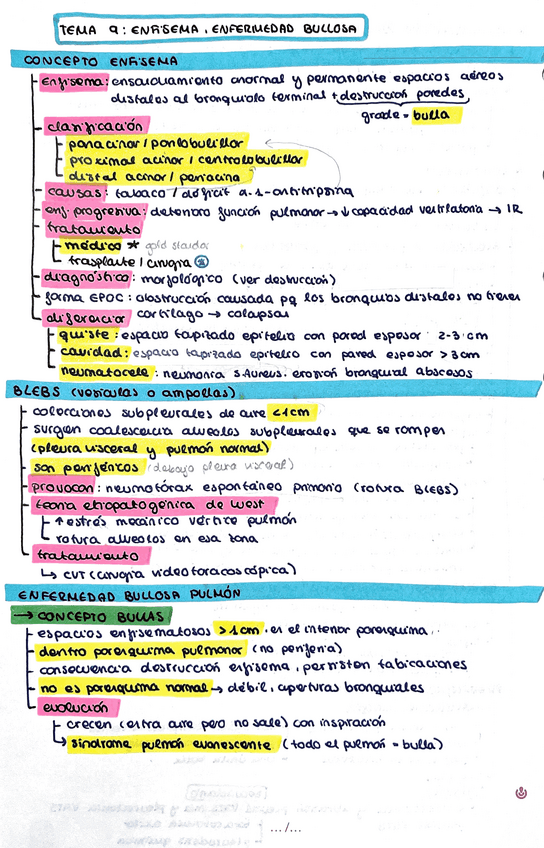 TEMA 9: ENFISEMA, ENFERMEDAD BULLOSA
CONCEPTO ENFISEMA
enfisema: ensanchamiento anormal y permanente espacios aéreos
distales al bronquiolo terminal + destrucción paredes
grade = bulla
clasificación
panacinar / panlobulillar
proximal acinar / centrolobulillar
distal acinar / periacina
causas: tabaco / déficit α-1-antitripsina
enf. progresiva: deterioro función pulmonar → ↓ capacidad ventilatoria → IR
tratamiento
médico * gold standar
trasplante / cirugía
diagnóstico: morfológico (ver destrucción)
forma EPOC: obstrucción causada pq los bronquios distales no tienen
cartílago → colapsan
diferenciar
quiste: espacio tapizado epitelio con pared espesor 2-3 cm
cavidad: espacio tapizado epitelio con pared espesor > 3 cm
neumatocele: neumonía S. Aureus. erosión bronquial abscesos
BLEBS (vesículas o ampollas)
colecciones subpleurales de aire < 1 cm
surgen coalescencia alveolos subpleurales que se rompen
(pleura visceral y pulmón normal)
son periféricos (debajo pleura visceral)
provocan: neumotórax espontáneo primario (rotura BLEBS)
teoría etiopatogénica de West
↑ estrés mecánico vértice pulmón
rotura alveolos en esa zona
tratamiento
↳ CVT (cirugía videotoracoscópica)
ENFERMEDAD BULLOSA PULMÓN
→ CONCEPTO BULLAS
espacios enfisematosos > 1 cm. en el interior parenquima.
dentro parenquima pulmonar (no periferia)
consecuencia destrucción enfisema, persisten tabicaciones
no es parenquima normal → débil, aperturas bronquiales
evolución
crecen (entra aire pero no sale) con inspiración
síndrome pulmón evanescente (todo el pulmón = bulla)
.../...